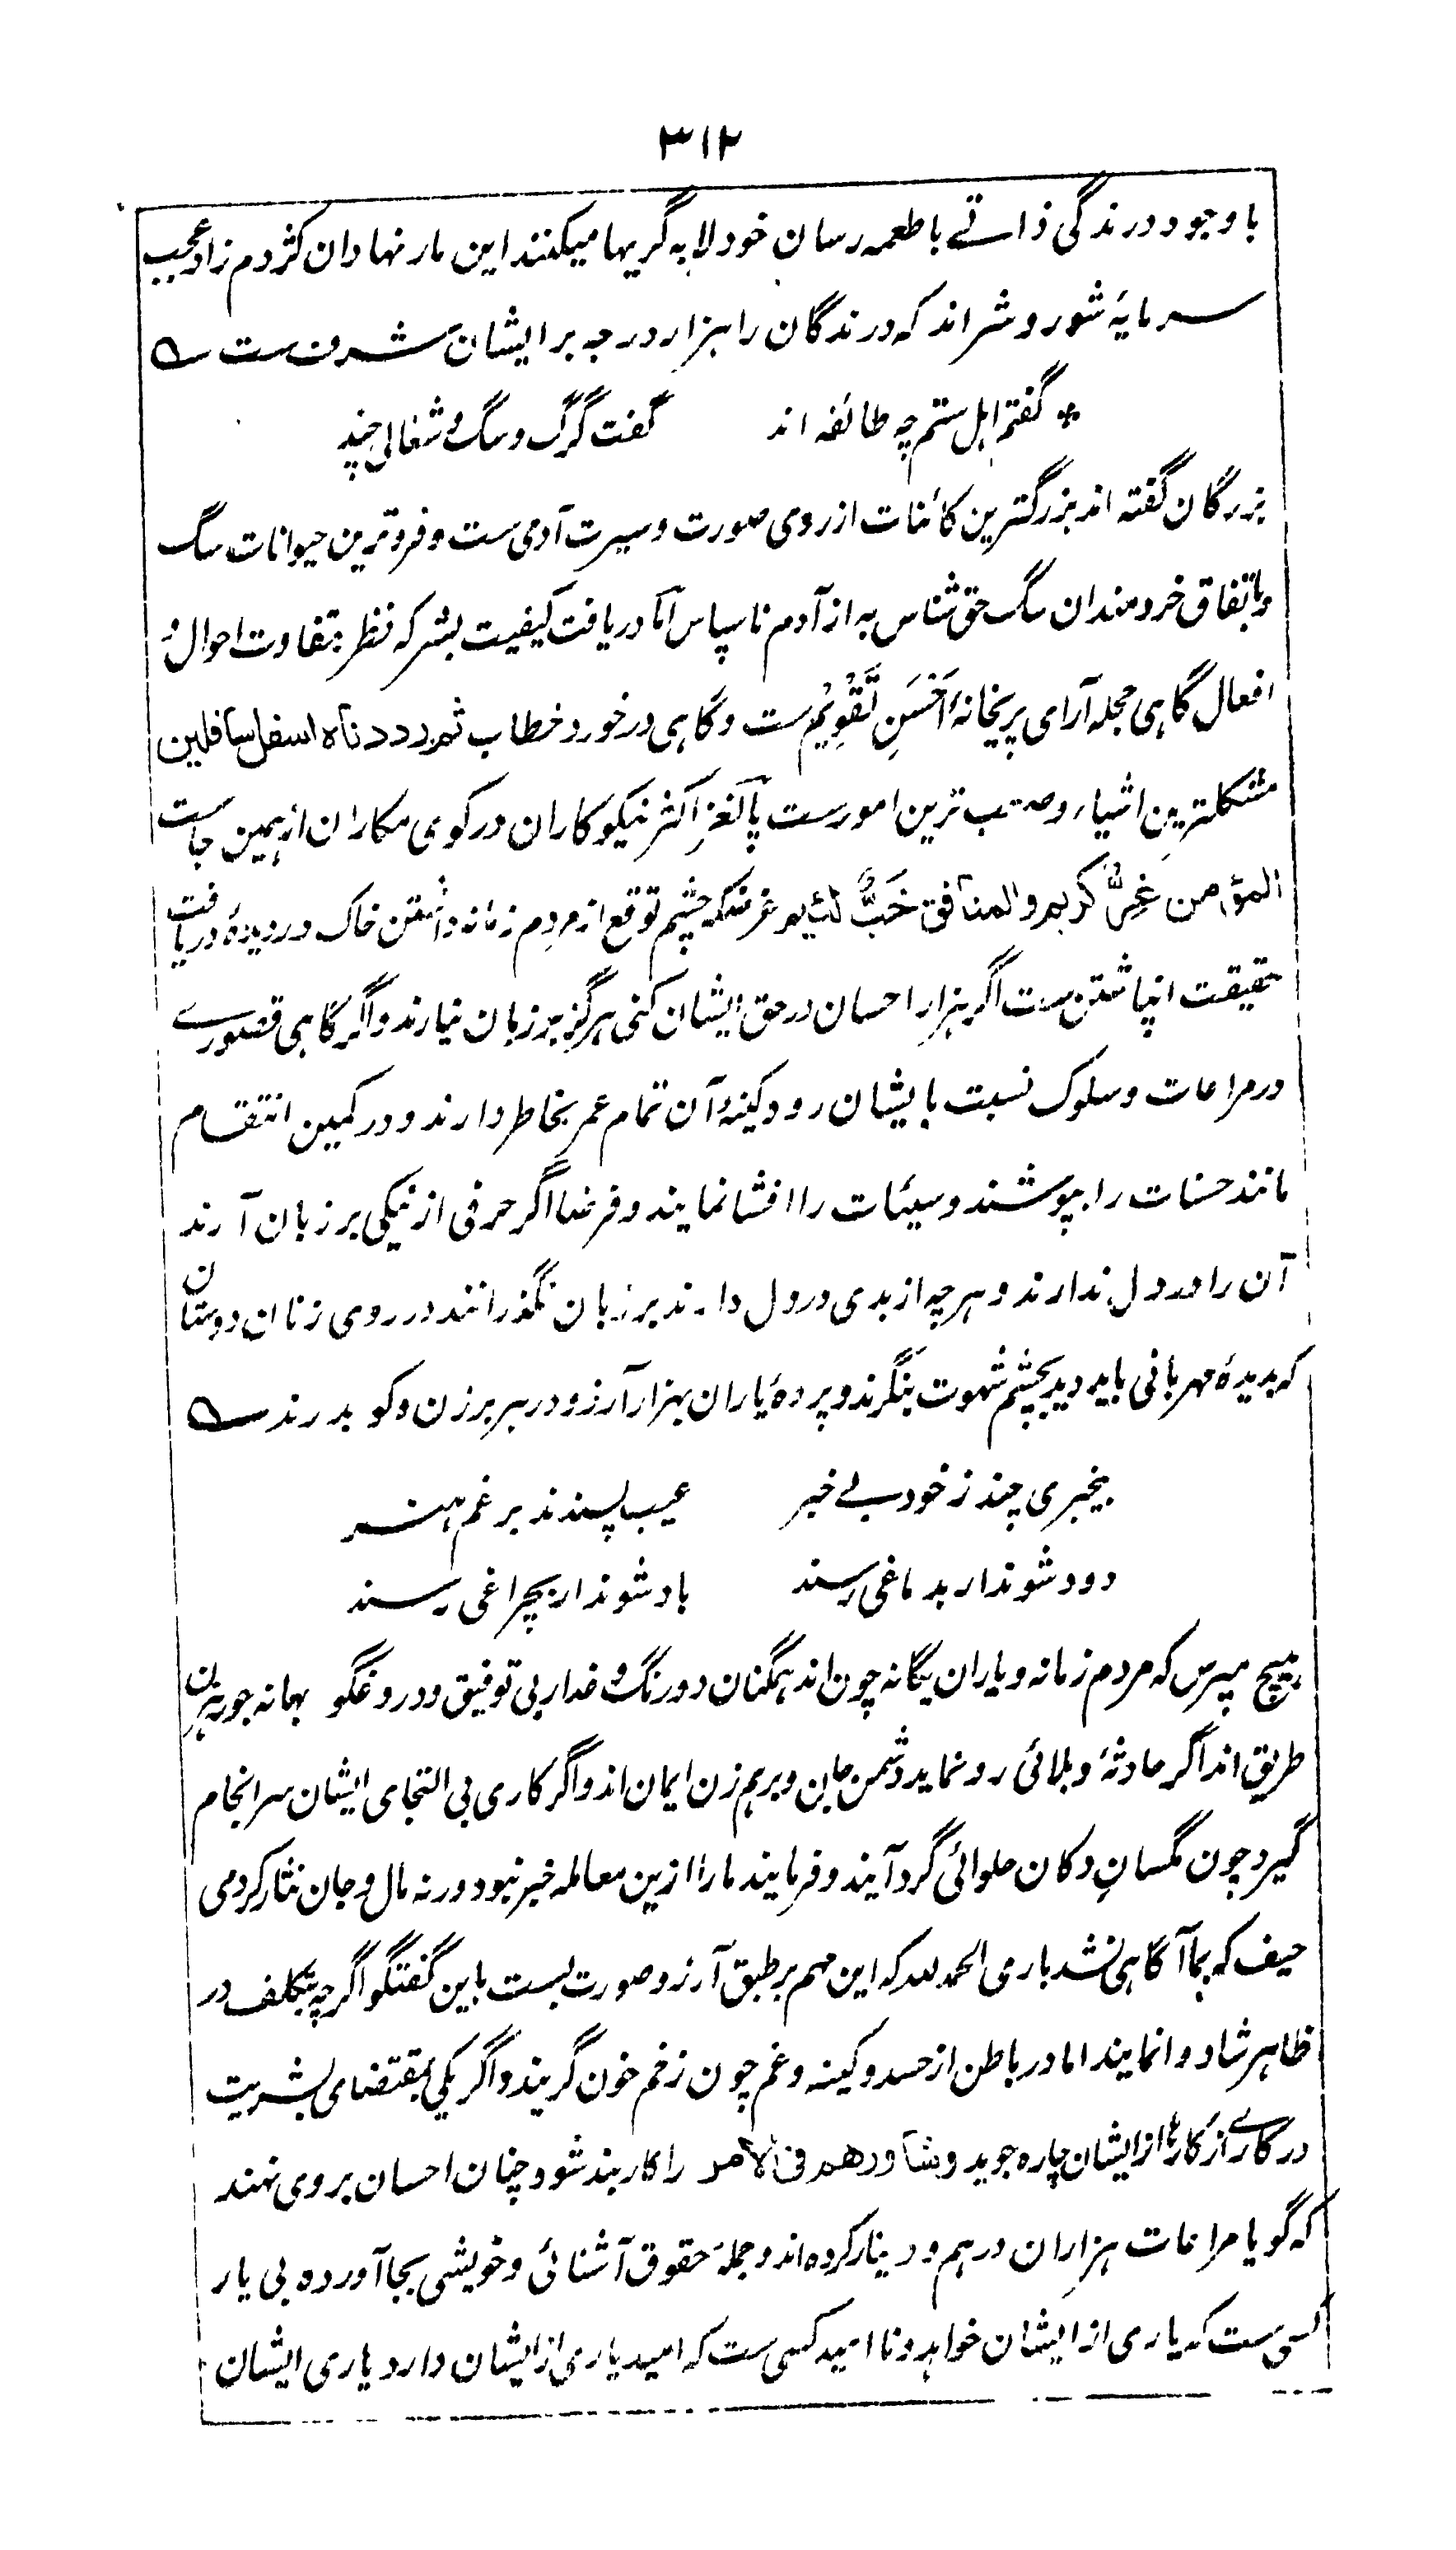 ۳۱۲
با وجود درندگی ذاتے با طعمه رسان خود لابه گریها میکنند این مار نهادان کژدم زاد عجب
سرمایۀ شور و شر اند که درندگان را هزار درجه بر ایشان شرف ست ؎
* گفتم اهل ستم چه طائفه اند گفت گرگ و سگ و شغالی چند
بزرگان گفته اند بزرگترین کائنات از روی صورت و سیرت آدمی ست و فروترین حیوانات سگ
و باتفاق خردمندان سگ حق شناس به از آدم ناسپاس اما دریافت کیفیت بشر که نظر بتفاوت احوال و
افعال گاهی حجله آرای پریخانۀ اَحْسَنِ تَقْوِیْمٍ ست و گاهی درخورد خطاب ثم رددناه اسفل سافلین
مشکلترین اشیاء و صعب ترین امورست پالغز اکثر نیکوکاران در کوی مکاران از همین جاست
المؤمن غِرٌّ کریم والمنافق خَبٌّ لئیم غرضکه چشم توقع از مردم زمانه داشتن خاک در دیدۀ دریافت
حقیقت انپاشتن ست اگر هزار احسان در حق ایشان کنی هرگز بر زبان نیارند و اگر گاهی قصورے
در مراعات و سلوک نسبت بایشان رود کینۀ آن تمام عمر بخاطر دارند و در کمین انتقام
مانند حسنات را بپوشند و سیئات را افشا نمایند و فرضا اگر حرفی از نیکی بر زبان آرند
آن را در دل ندارند و هرچه از بدی در دل دارند بر زبان نگذرانند در روی زنان دوستان
که بدیدۀ مهربانی باید دید بچشم شهوت بنگرند و پردۀ یاران بهزار آرزو در هر برزن و کو بدرند ؎
بیخبری چند ز خود بے خبر عیب پسندند برغم هنر
دود شوند ار بدماغی رسند باد شوند ار بچراغی رسند
هیچ مپرس که مردم زمانه و یاران یگانه چون اند همگنان دورنگ و غدار بی توفیق و دروغگو بهانه جو رهزن
طریق اند اگر حادثۀ و بلائی رو نماید دشمن جان و برهم زن ایمان اند و اگر کاری بی التجای ایشان سرانجام
گیرد چون مگسانِ دکان حلوائی گرد آیند و فرمایند ما را ازین معامله خبر نبود ورنه مال و جان نثار کردمی
حیف که بما آگاهی نشد باری الحمد لله که این مهم بر طبق آرزو صورت بست باین گفتگو اگرچه بتکلف در
ظاهر شاد وانمایند اما در باطن از حسد و کینه و غم چون زخم خون گریند و اگر یکی بمقتضای بشریت
در کارے از کارها از ایشان چاره جوید و شاورهم فی الامر را کاربند شود چنان احسان بروی نهند
که گویا مراعات هزاران درهم و دینار کرده اند و جملۀ حقوق آشنائی و خویشی بجا آورده بی یار
کسی ست که یاری از ایشان خواهد و ناامید کسی ست که امید یاری از ایشان دارد یاری ایشان